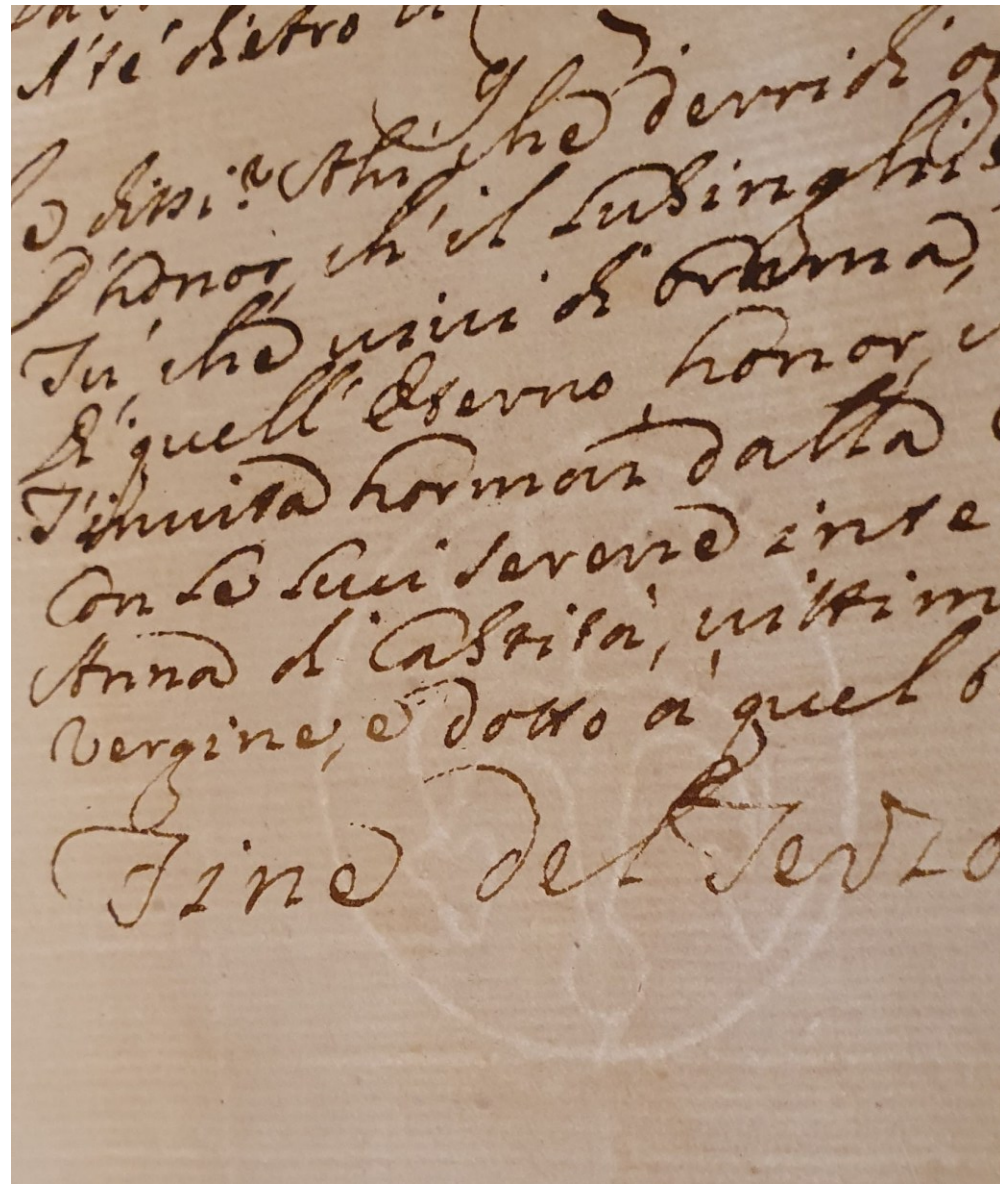 A' té dietro
e dissi? Ahi, che derridi
D'honor, ch' il lusinghi
Tu, che vivi di brama,
A' quell' Eterno honor,
T'invita hormai dalla
Con le luci serene inte
Anna di Castità, vittim
Vergine, e dotto à quel b
Fine del Terzo